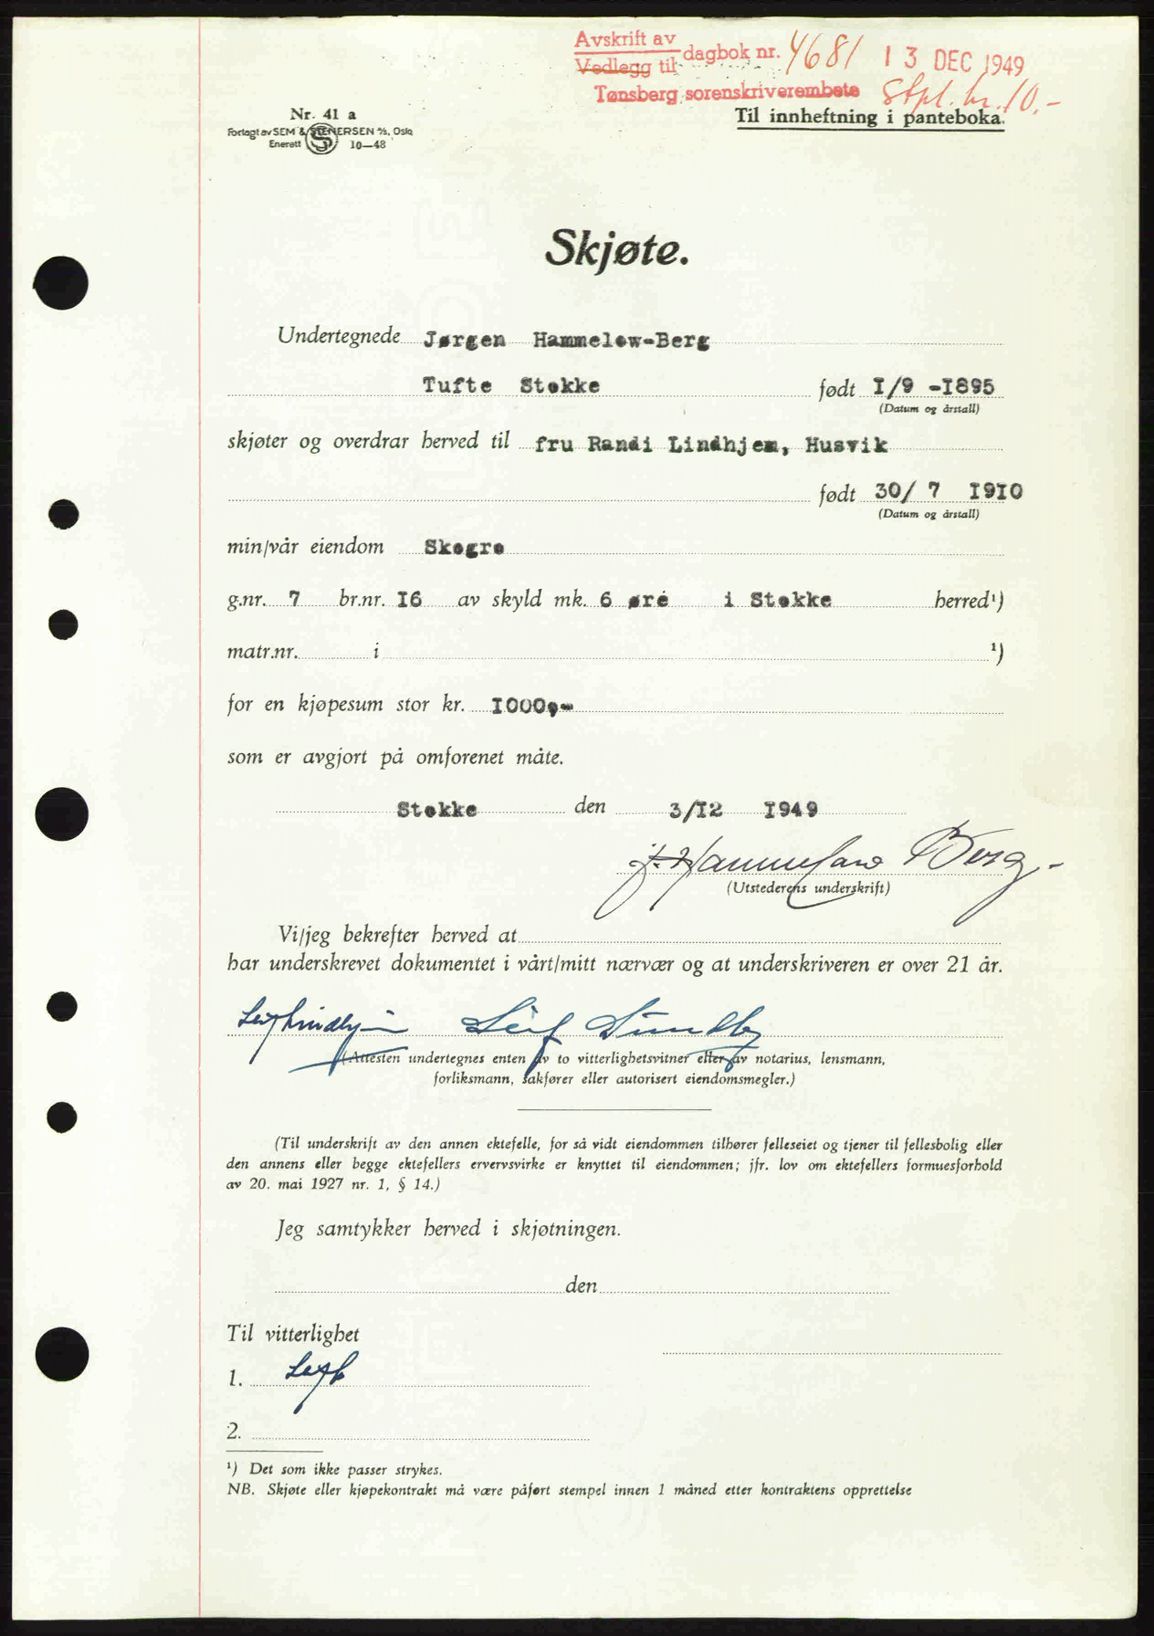 Avskrift av
Vedlegg til dagbok nr. 4681 13 DEC 1949
Tønsberg sorenskriverembete Stpl. kr. 10.-
Til innheftning i panteboka.
Nr. 41 a
Forlagt av SEM & STENERSEN A/S, Oslo
Enerett 10-48
Skjøte.
Undertegnede Jørgen Hammelow-Berg
Tufte Stokke født 1/9 -1895
(Datum og årstall)
skjøter og overdrar herved til fru Randi Lindhjem, Husvik
født 30/ 7 1910
(Datum og årstall)
min/vår eiendom Skogro
g.nr. 7 br.nr. 16 av skyld mk. 6 øre i Stokke herred¹)
matr.nr. i ¹)
for en kjøpesum stor kr. 1000,-
som er avgjort på omforenet måte.
Stokke den 3/12 1949
J. Hammelow Berg.
(Utstederens underskrift)
Vi/jeg bekrefter herved at
har underskrevet dokumentet i vårt/mitt nærvær og at underskriveren er over 21 år.
Leif Lindhjem Leif Sundby
(Attesten undertegnes enten av to vitterlighetsvitner eller av notarius, lensmann,
forliksmann, sakfører eller autorisert eiendomsmegler.)
(Til underskrift av den annen ektefelle, for så vidt eiendommen tilhører felleseiet og tjener til fellesbolig eller
den annens eller begge ektefellers ervervsvirke er knyttet til eiendommen; jfr. lov om ektefellers formuesforhold
av 20. mai 1927 nr. 1, § 14.)
Jeg samtykker herved i skjøtningen.
den
Til vitterlighet
1.
2.
¹) Det som ikke passer strykes.
NB. Skjøte eller kjøpekontrakt må være påført stempel innen 1 måned etter kontraktens opprettelse